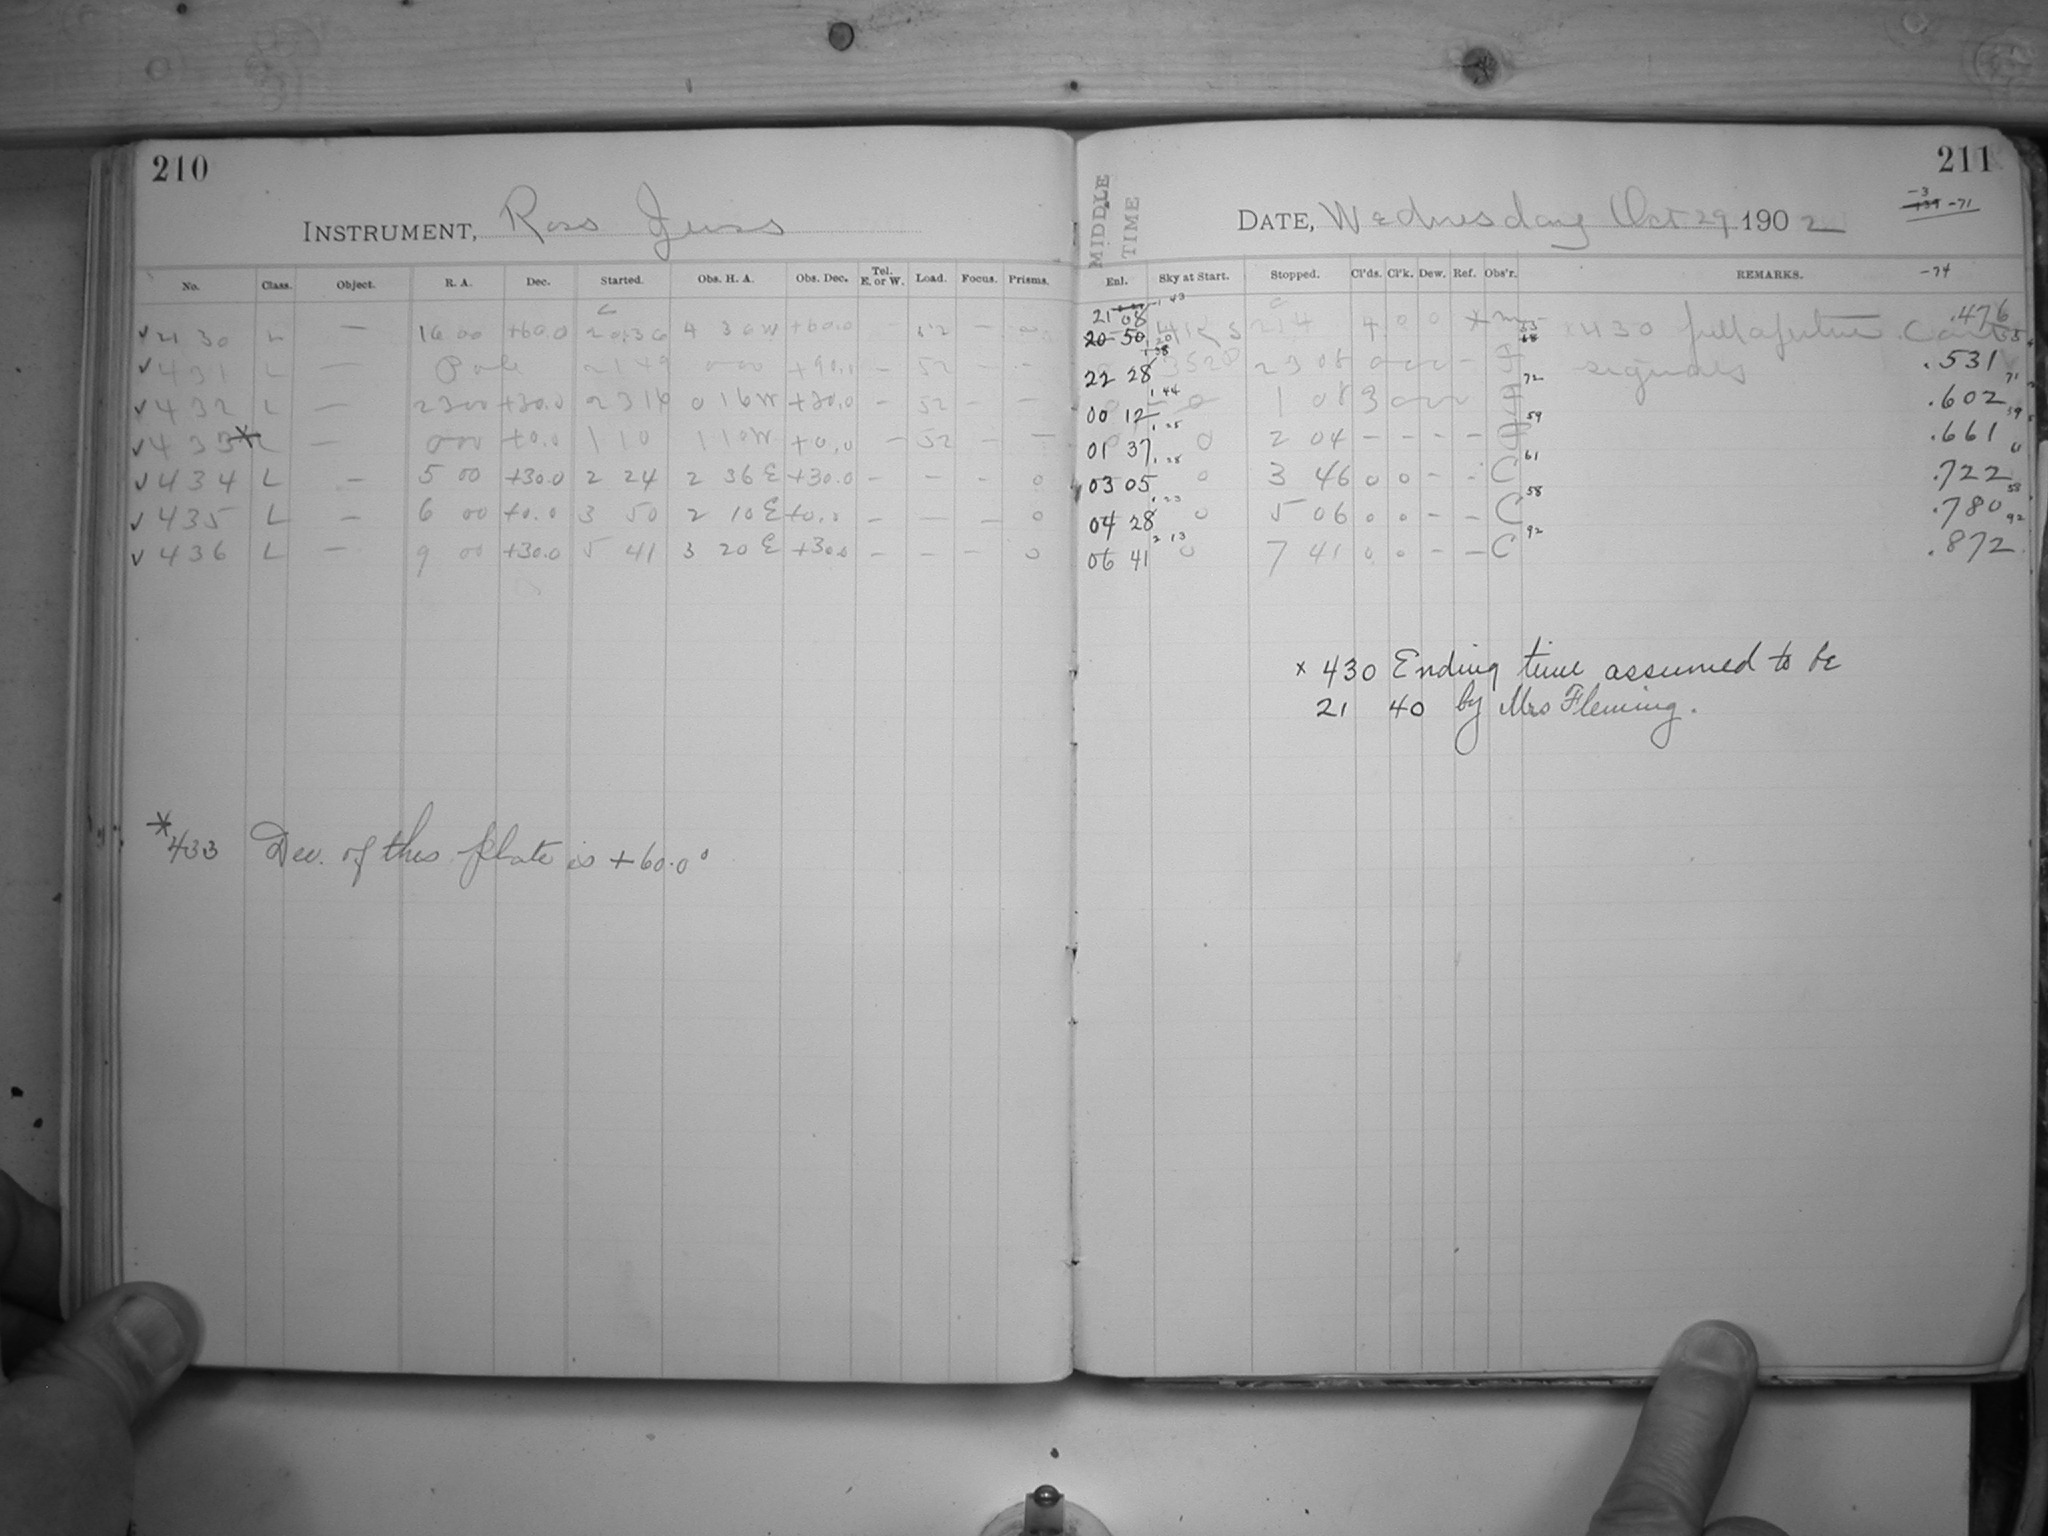 210
INSTRUMENT, Ross
No. Class. Object. R. A. Dec. Started. Obs. H. A. Obs. Dec. Tel. E. or W. Load. Focus. Prisms.
✓ 430 L — 16 00 +60.0 20.36 4 36 W +60.0 — 52 —
✓ 431 L — Pole 2149 +90.0 — 52 — —
✓ 432 L — 2300 +30.0 2316 0 16 W +30.0 — 52 — —
✓ 433* L — 000 +0.0 1 10 1 10 W +0.0 — 52 — —
✓ 434 L — 5 00 +30.0 2 24 2 36 E +30.0 — — — 0
✓ 435 L — 6 00 +0.0 3 50 2 10 E +0.0 — — — 0
✓ 436 L — 9 00 +30.0 5 41 3 20 E +30.0 — — — 0
* 433 Dec. of this plate is +60.0°
211
MIDDLE TIME
DATE, Wednesday Oct 29 1902
-3
-71
Enl. Sky at Start. Stopped. Cl'ds. Cl'k. Dew. Ref. Obs'r. REMARKS. -74
21 08 .476
20 50 4 0 0 × 430 full aperture
22 28 1 38 2308 signals .531
00 12 1 44 0 1 08 3 72 .602 71
01 37 1 25 0 2 04 - - - - 59 .661 59
03 05 1 28 0 3 46 0 0 - - C 61 .722 61
04 28 1 23 0 5 06 0 0 - - C 58 .780 58
06 41 2 13 0 7 41 0 0 - - C 92 .872 92
× 430 Ending time assumed to be
21 40 by Mrs Fleming.